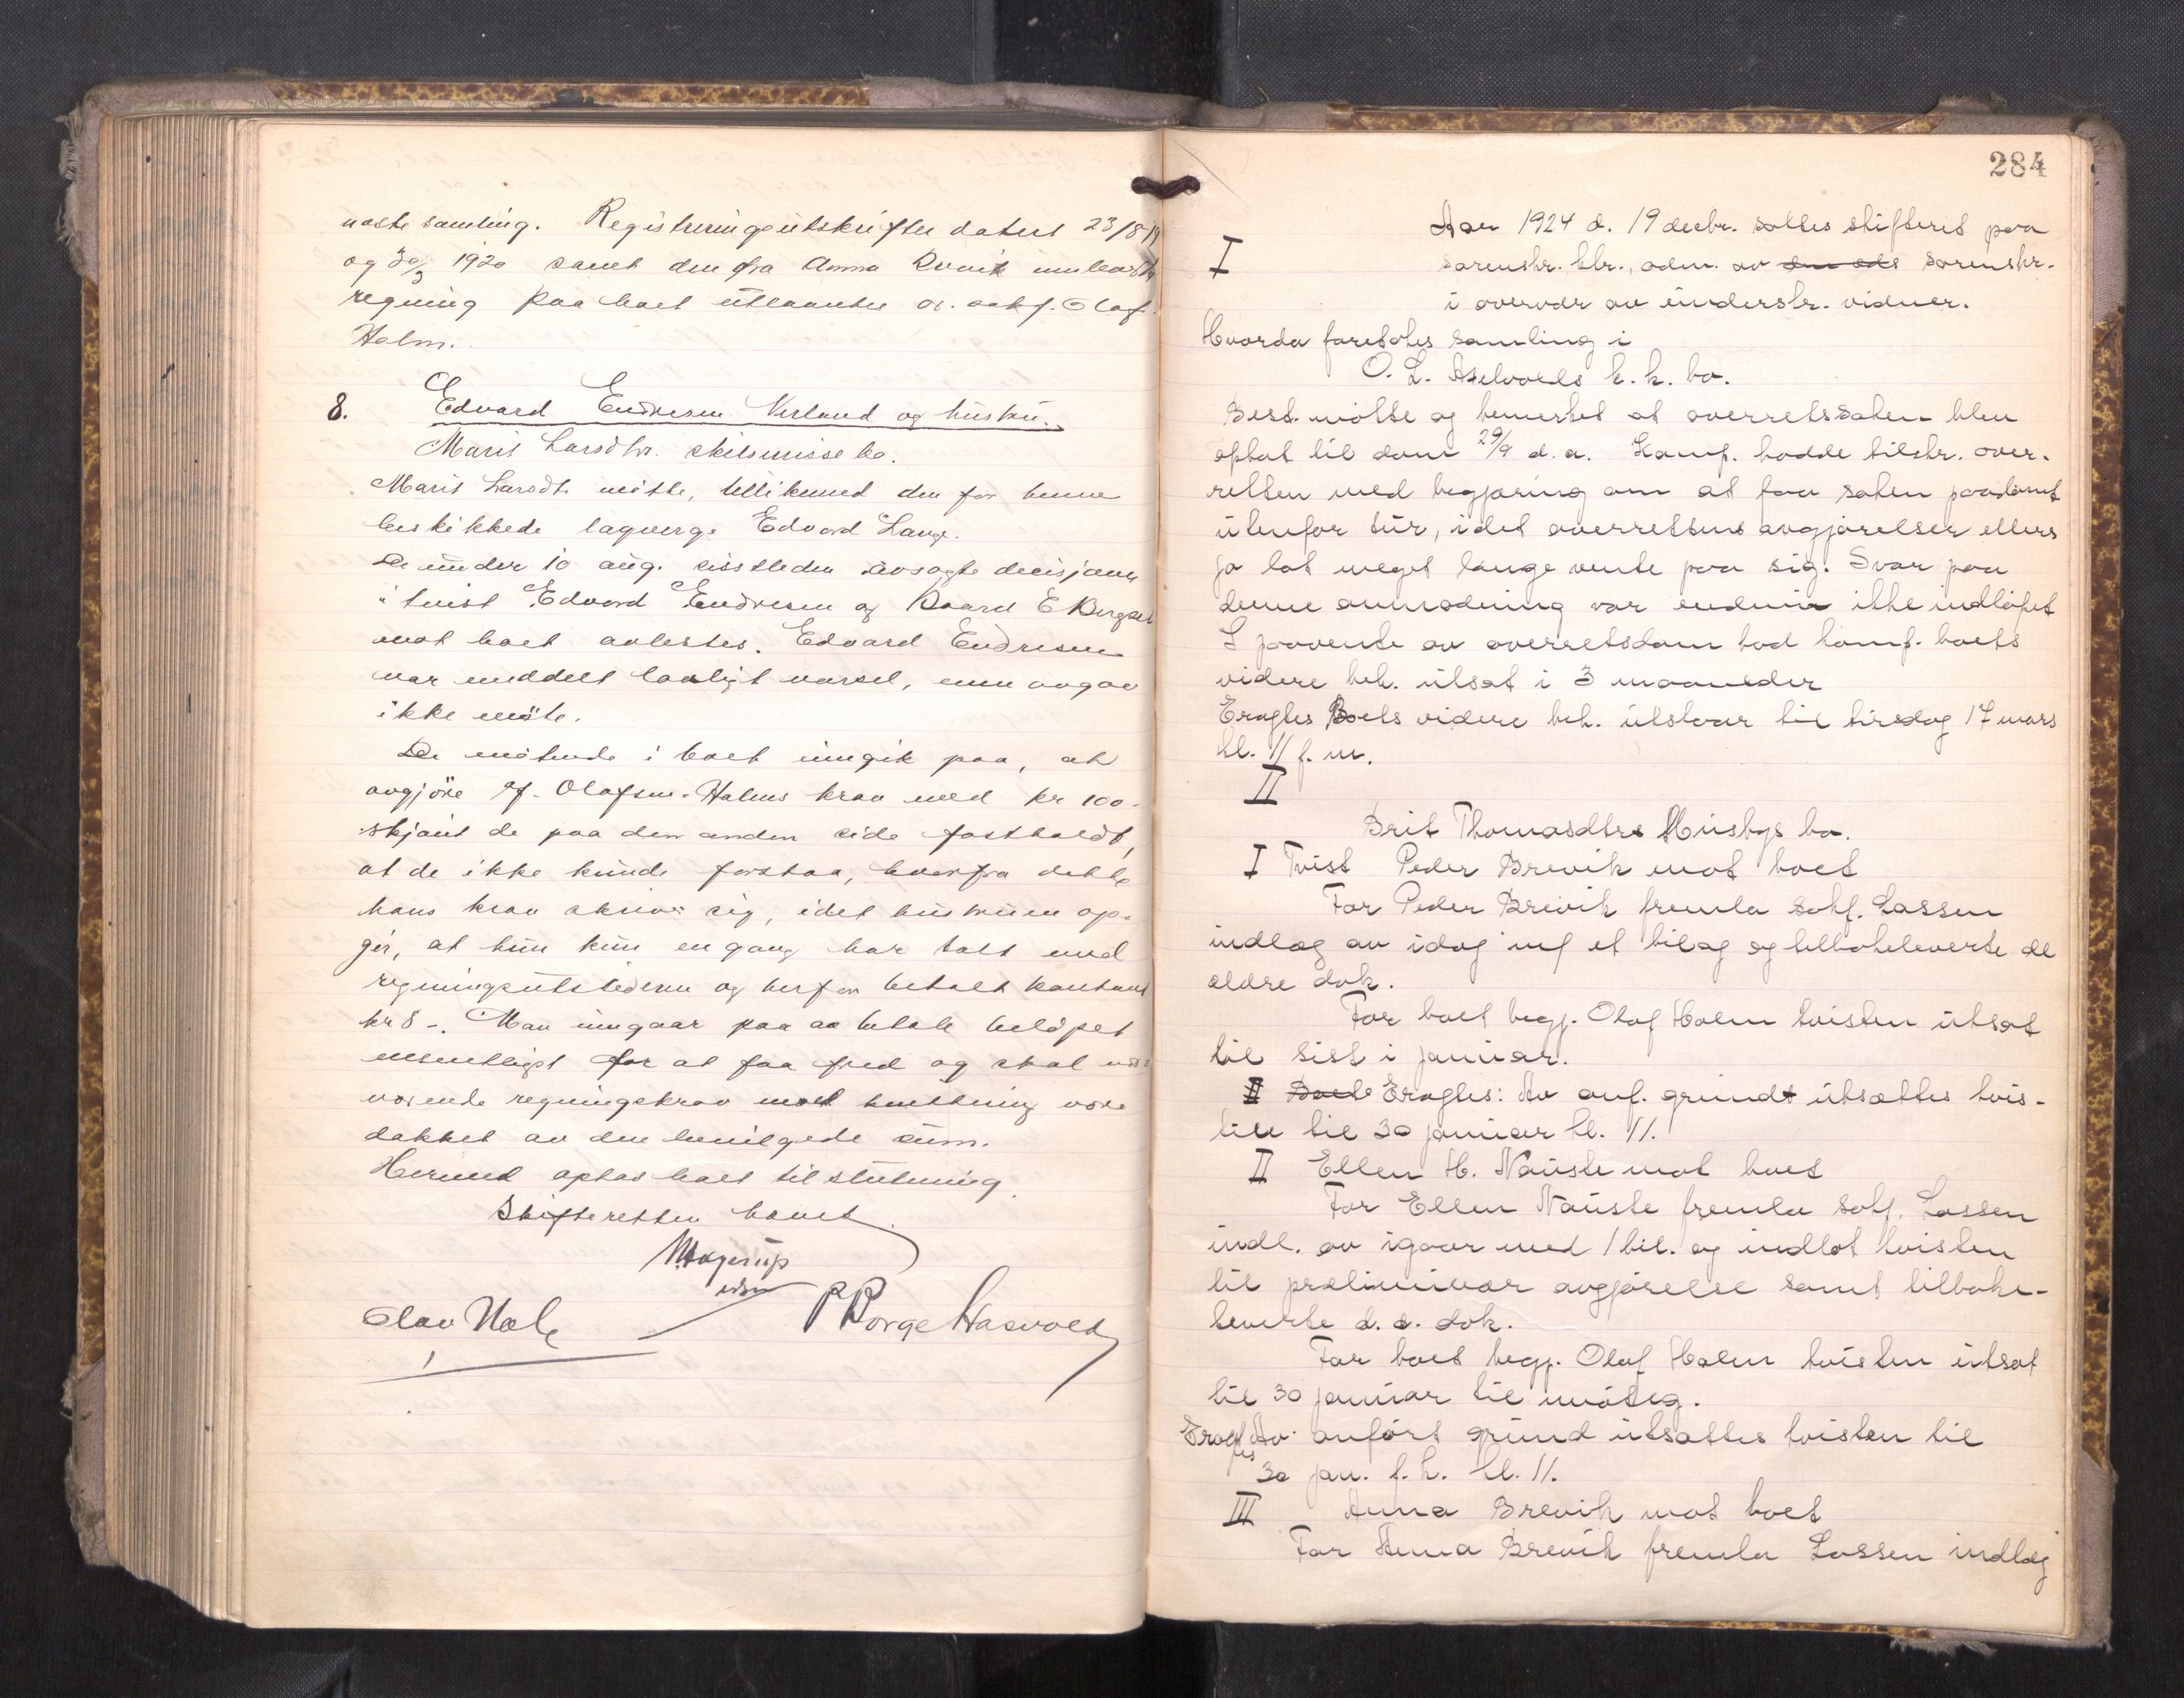 næste samling. Registreringsutskrifter datert 23/8 19
og 30/3 1920 samt den fra Anna Brevik innleverte
regning paa boet utlaantes o.r. sakf. Olaf
Holm.
8. Edvard Endresen Verland og hustru
Marit Larsdtr. skilsmisse bo.
Marit Larsdtr møtte, tillikemed den for henne
beskikkede lagverge Edvard Lange.
Den under 10 aug. sisstleden avsagte decisjon
i tvist Edvard Endresen og Baard E Berget
mot boet avlestes. Edvard Endresen
var meddelt lovligt varsel, men avgav
ikke møte.
De møtende i boet inngik paa, at
avgjöre sf. Olafsen-Holms krav med kr 100-
skjönt de paa den anden side fastholdt,
at de ikke kunde forstaa, hvorfra dette
hans krav skriver sig, idet hustruen op-
gir, at hun kun en gang har talt med
regningsutstederen og herfor betalt kontant
kr 8 -. Man inngaar paa aa betale beløpet
vesentligst for at faa fred og skal
værende regningskrav mot være
dækket av den bevilgede sum.
Hermed optas boet til slutning.
Skifteretten hævet
MHagerup
edsv
Olav Hale P P Borge Hasvold
284
Aar 1924 d. 19 decbr. sattes skifteret paa
I sorenskr. ktr., adm. av den eds sorenskr.
i overvær av underskr. vidner.
Hvorda foretokes samling i
O. L. Aselvolds k. k. bo.
Best. møtte og bemerket at overretssaken blev
optat til dom 29/9 d. a. Komp. hadde tilskr. over-
retten med begjæring om at faa saken paadømt
utenfor tur, idet overrettens avgjørelser ellers
jo lot meget længe vente paa sig. Svar paa
denne anmodning var endnu ikke indløpet
I paavente av overretsdom bad komp. boets
videre beh. utsat i 3 maaneder
Eragtes Boets videre beh. utstaar til tirsdag 17 mars
kl. 11 f. m.
II
Brit Thomasdtrs Husbys bo.
I Tvist Peder Brevik mot boet
For Peder Brevik fremla sakf. Lassen
indlæg av idag m/ et bilag og tilbakeleverte de
ældre dok.
For boet begj. Olaf Holm tvisten utsat
til sist i januar.
II Boets Eragtes: Av anf. grund utsættes tvis-
ten til 30 januar kl. 11.
II Ellen H. Nauste mot boet
For Ellen Nauste fremla sakf. Lassen
indl. av igaar med 1 bil. og indlot tvisten
til præliminær avgjørelse samt tilbake-
leverte d. æ. dok.
For boet begj. Olaf Holm tvisten utsat
til 30 januar til imøteg.
Eragtes Av anført grund utsættes tvisten til
30 jan. f. k. kl. 11.
III Anna Brevik mot boet
For Anna Brevik fremla Lassen indlæg